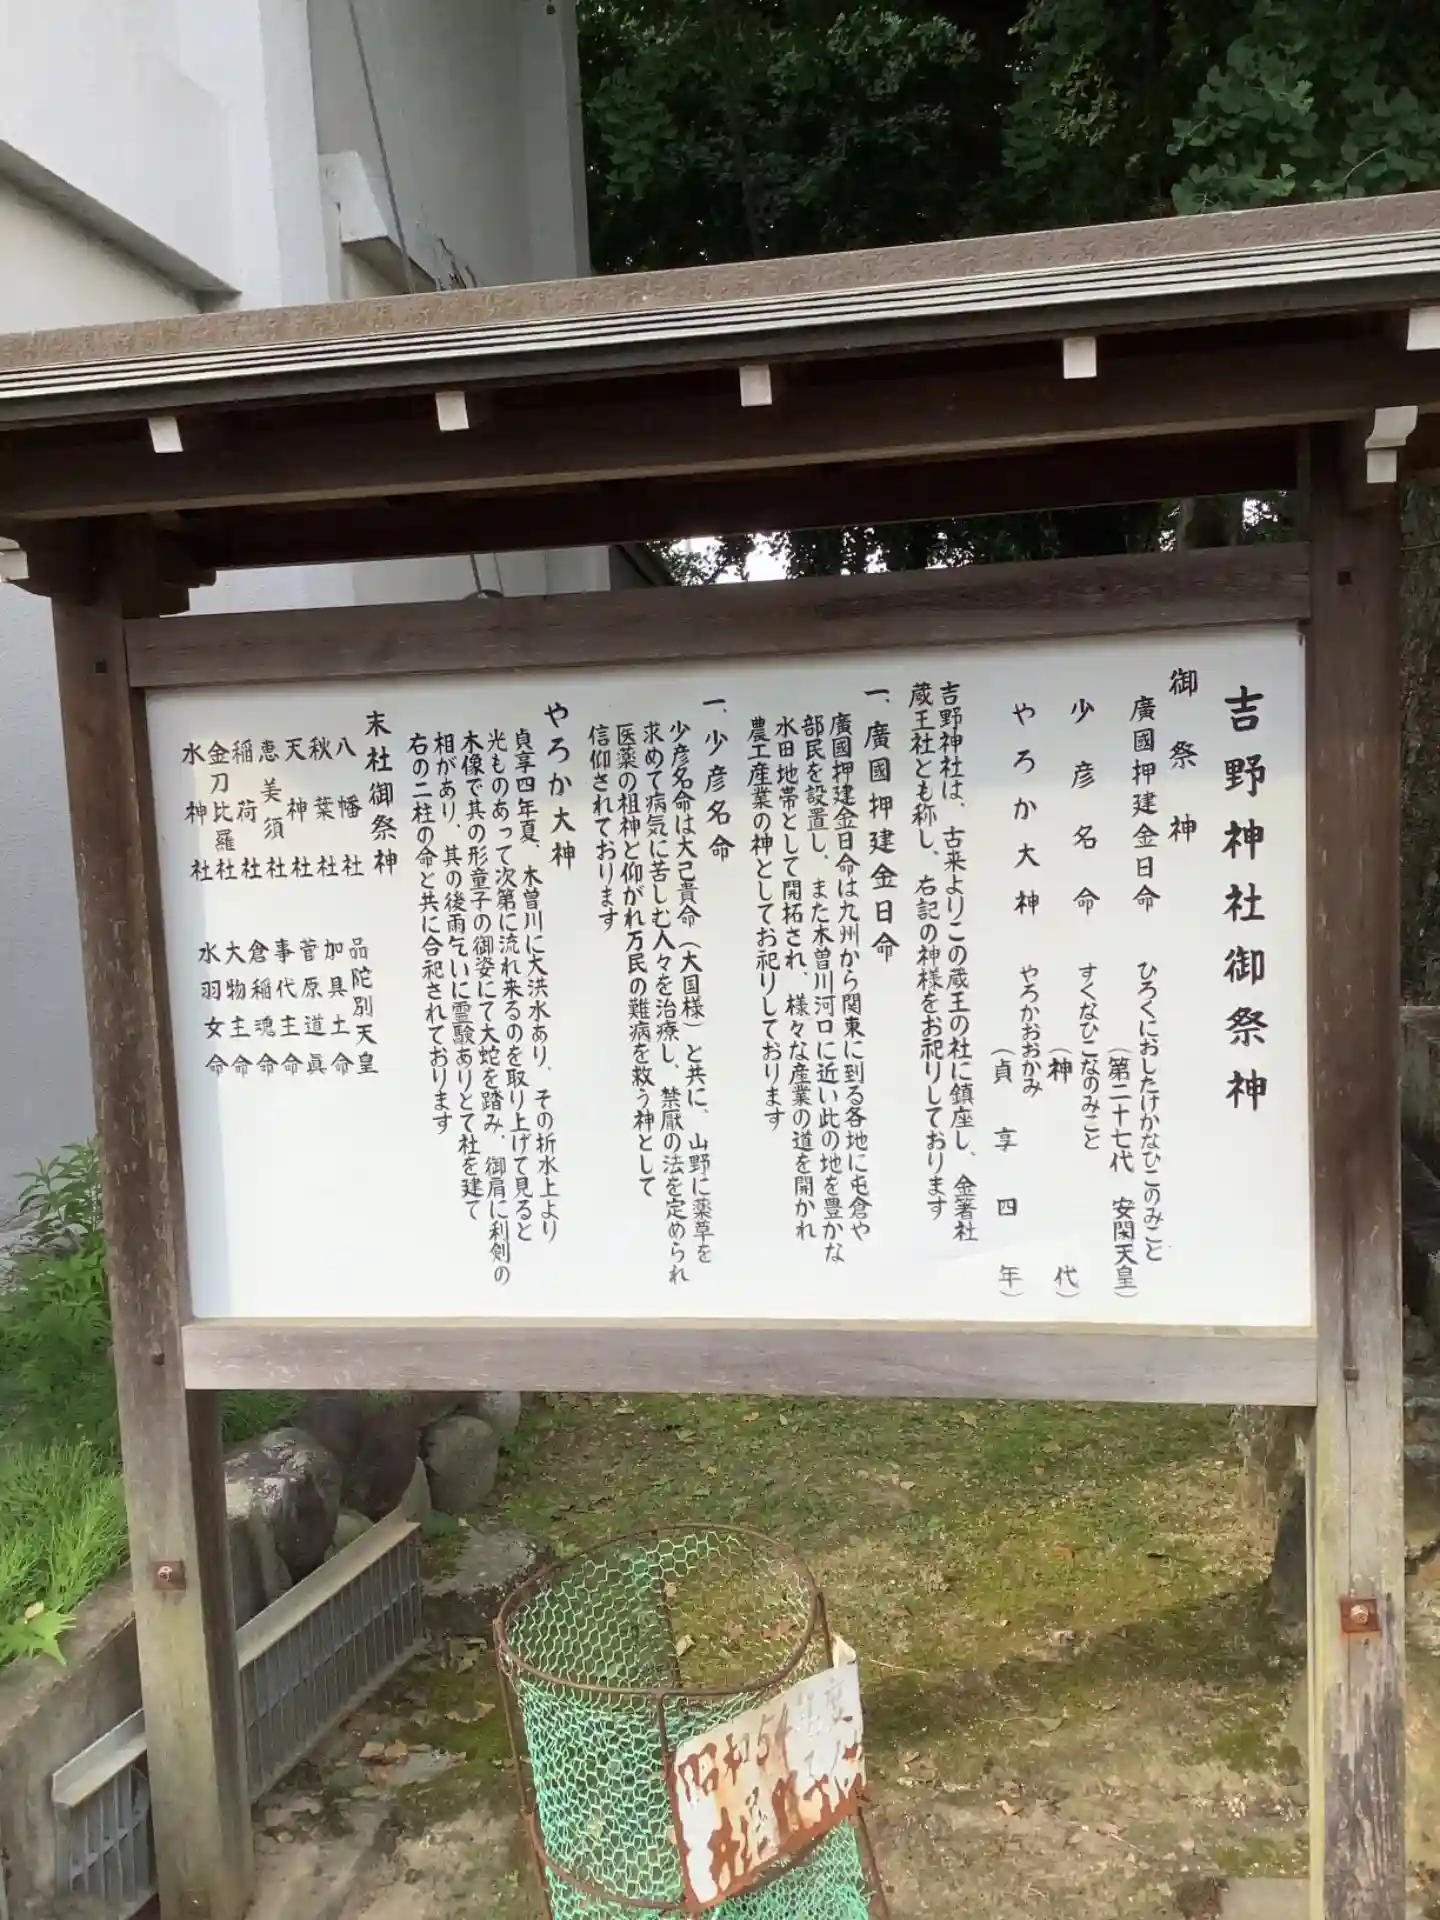 吉野神社御祭神
御祭神
廣國押建金日命 ひろくにおしたけかなひこのみこと
（第二十七代 安閑天皇）
少彦名命 すくなひこなのみこと
（神代）
やろか大神 やろかおおかみ
（貞享四年）
吉野神社は、古来よりこの蔵王の社に鎮座し、金箸社
蔵王社とも称し、右記の神様をお祀りしております
一、廣國押建金日命
廣國押建金日命は九州から関東に到る各地に屯倉や
部民を設置し、また木曽川河口に近い此の地を豊かな
水田地帯として開拓され、様々な産業の道を開かれ
農工産業の神としてお祀りしております
一、少彦名命
少彦名命は大己貴命（大国様）と共に、山野に薬草を
求めて病気に苦しむ人々を治療し、禁厭の法を定められ
医薬の祖神と仰がれ万民の難病を救う神として
信仰されております
やろか大神
貞享四年夏、木曽川に大洪水あり、その折水上より
光ものあって次第に流れ来るのを取り上げて見ると
木像で其の形童子の御姿にて大蛇を踏み、御肩に利剣の
相があり、其の後雨乞いに霊験ありとて社を建て
右の二柱の命と共に合祀されております
末社御祭神
八幡社 品陀別天皇
秋葉社 加具土命
天神社 菅原道眞
恵美須社 事代主命
稲荷社 倉稲魂命
金刀比羅社 大物主命
水神社 水羽女命
昭和54年度